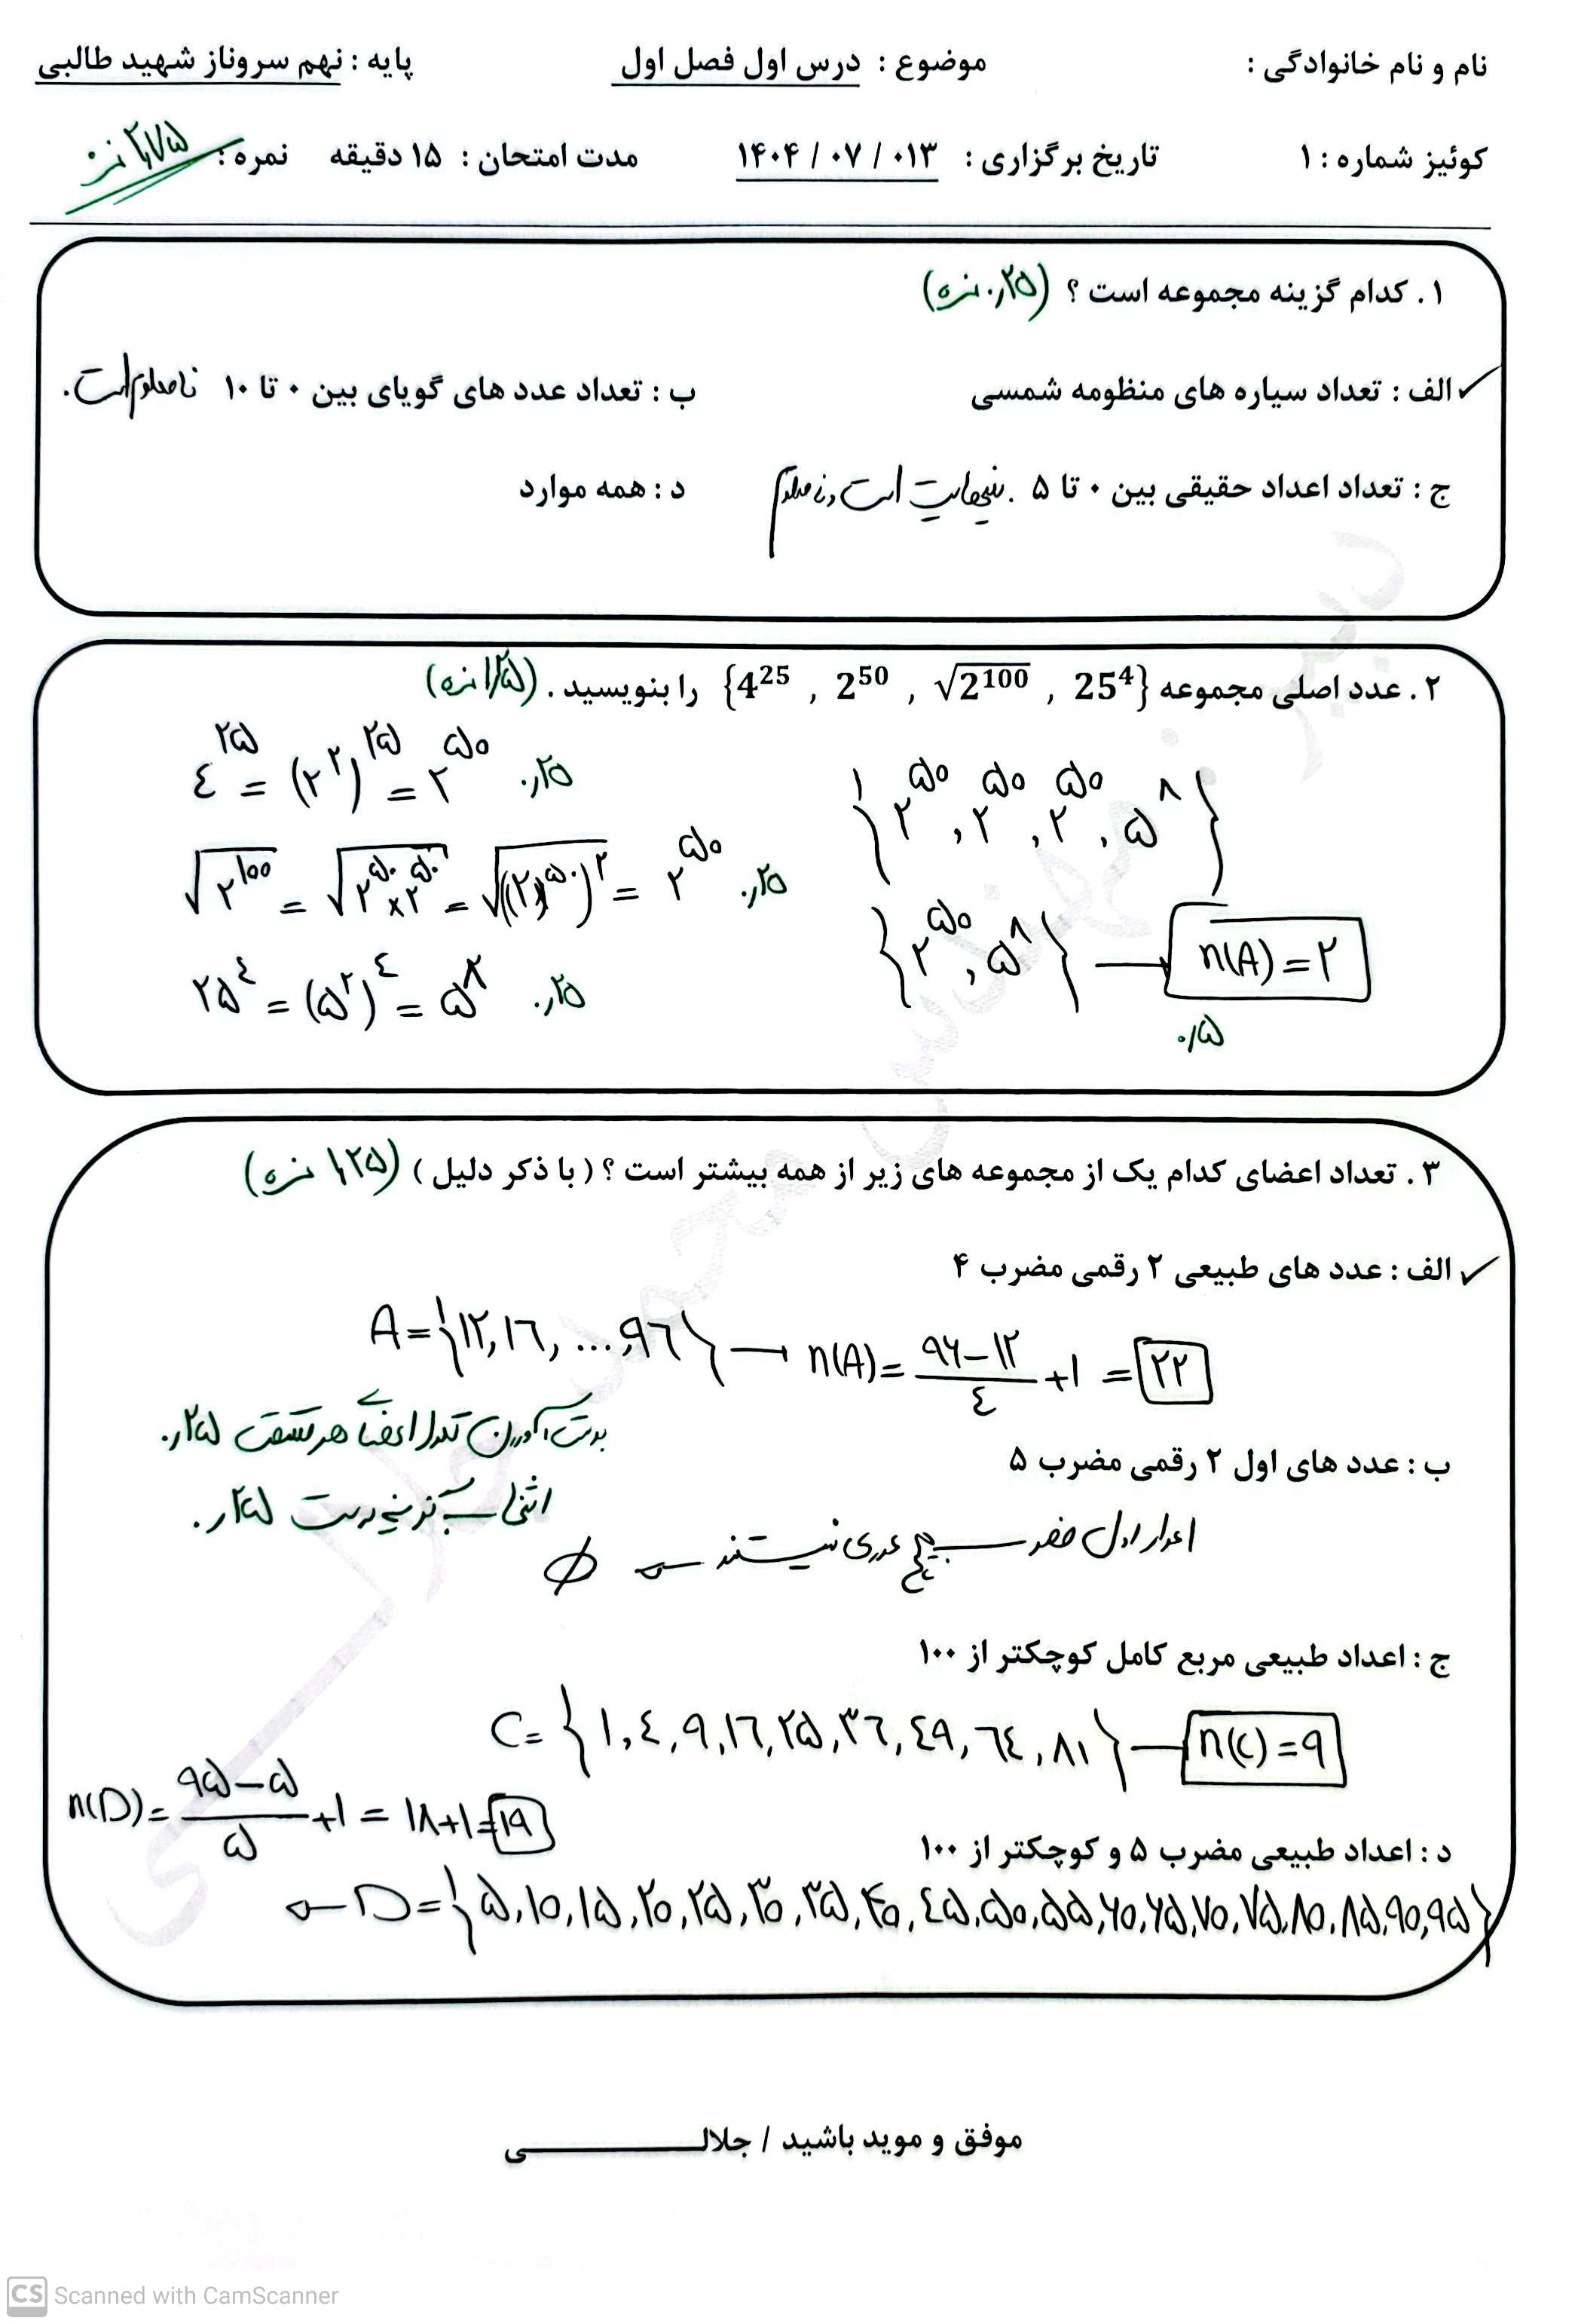 نام و نام خانوادگی : موضوع : درس اول فصل اول پایه : نهم سروناز شهید طالبی
کوئیز شماره : ۱ تاریخ برگزاری : ۰۱۳ / ۰۷ / ۱۴۰۴ مدت امتحان : ۱۵ دقیقه نمره : ۲,۷۵
۱. کدام گزینه مجموعه است ؟ (۰,۲۵ نمره)
✓ الف : تعداد سیاره های منظومه شمسی ب : تعداد عدد های گویای بین ۰ تا ۱۰ نامعلوم است.
ج : تعداد اعداد حقیقی بین ۰ تا ۵ . بینهایت است و نامعلوم د : همه موارد
۲. عدد اصلی مجموعه {4^25 , 2^50 , √2^100 , 25^4} را بنویسید . (۱,۲۵ نمره)
۴^۲۵ = (۲^۲)^۲۵ = ۲^۵۰ ۰,۲۵
{۲^۵۰, ۲^۵۰, ۲^۵۰, ۵^۸}
√۲^۱۰۰ = √۲^۵۰ × ۲^۵۰ = √((۲)^۵۰)^۲ = ۲^۵۰ ۰,۲۵
{۲^۵۰, ۵^۸} → n(A) = ۲
۲۵^۴ = (۵^۲)^۴ = ۵^۸ ۰,۲۵
۰,۵
۳. تعداد اعضای کدام یک از مجموعه های زیر از همه بیشتر است ؟ ( با ذکر دلیل ) (۱,۲۵ نمره)
✓ الف : عدد های طبیعی ۲ رقمی مضرب ۴
A = {۱۲, ۱۶, ..., ۹۶} → n(A) = (۹۶ - ۱۲)/۴ + ۱ = ۲۲
بدست آوردن تعداد اعضای هر قسمت ۰,۲۵
ب : عدد های اول ۲ رقمی مضرب ۵
انتخاب گزینه درست ۰,۲۵
اعداد اول مضرب هیچ عددی نیستند ← ∅
ج : اعداد طبیعی مربع کامل کوچکتر از ۱۰۰
C = {۱, ۴, ۹, ۱۶, ۲۵, ۳۶, ۴۹, ۶۴, ۸۱} → n(C) = ۹
د : اعداد طبیعی مضرب ۵ و کوچکتر از ۱۰۰
D = {۵, ۱۰, ۱۵, ۲۰, ۲۵, ۳۰, ۳۵, ۴۰, ۴۵, ۵۰, ۵۵, ۶۰, ۶۵, ۷۰, ۷۵, ۸۰, ۸۵, ۹۰, ۹۵}
n(D) = (۹۵ - ۵)/۵ + ۱ = ۱۸ + ۱ = ۱۹
موفق و موید باشید / جلالـــــــــــی
CS Scanned with CamScanner